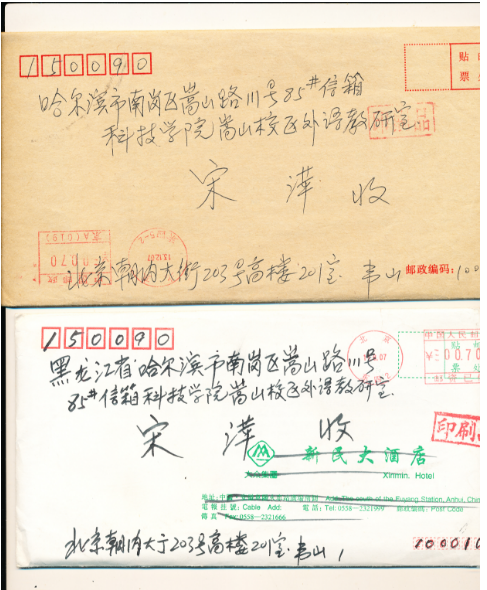 150090
贴
票
哈尔滨市南岗区嵩山路111号85#信箱
科技学院嵩山校区外语教研室
宋 萍 收
北京朝内大街203号高楼201室 韦山
邮政编码:100
150090
北京
中国人民
¥ 00.70
黑龙江省哈尔滨市南岗区嵩山路111号
85#信箱科技学院嵩山校区外语教研室
宋 萍 收
印刷
新民大酒店
Xinmin. Hotel
電報挂號: Cable Add:
電話: Tel. 0558—2321999 郵政編碼: Post Code
傳真 Fax: 0558—2321666
北京朝内大于203号高楼201室 韦山
100010